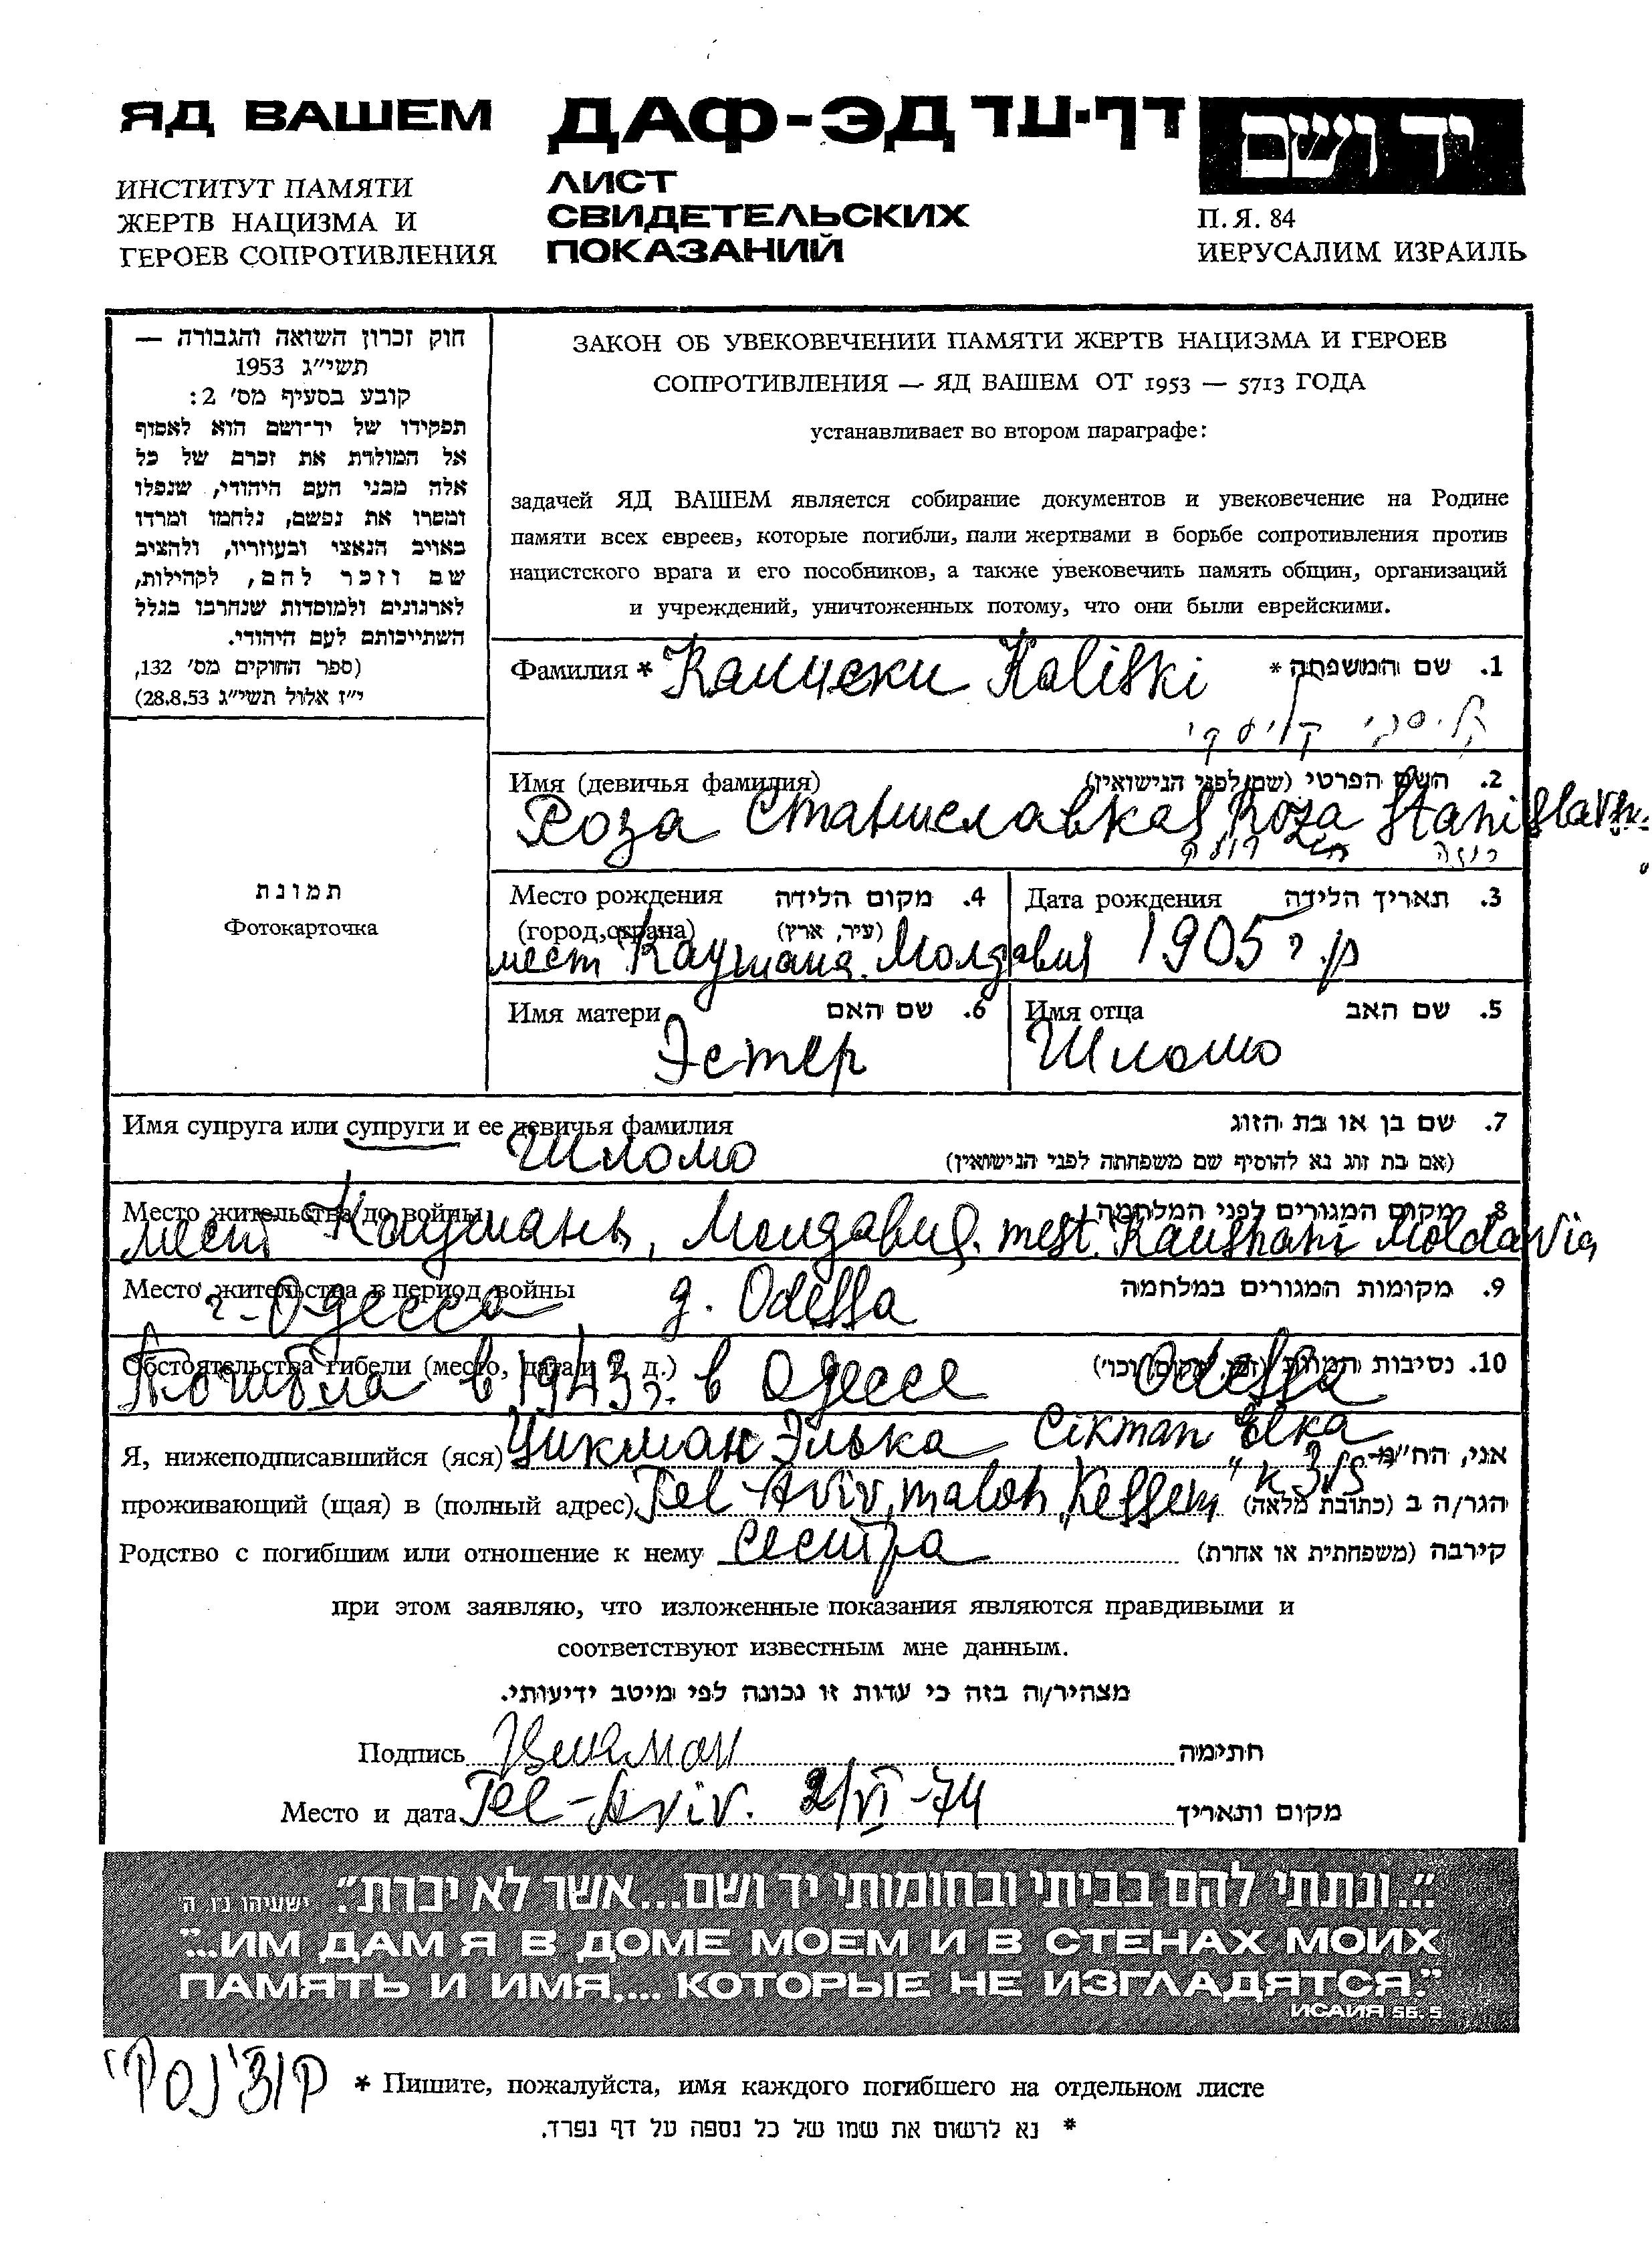 ЯД ВАШЕМ
ИНСТИТУТ ПАМЯТИ
ЖЕРТВ НАЦИЗМА И
ГЕРОЕВ СОПРОТИВЛЕНИЯ
ДАФ-ЭД דף-עד
ЛИСТ
СВИДЕТЕЛЬСКИХ
ПОКАЗАНИЙ
יד ושם
П. Я. 84
ИЕРУСАЛИМ ИЗРАИЛЬ
חוק זכרון השואה והגבורה —
תשי״ג 1953
קובע בסעיף מס׳ 2:
תפקידו של יד־ושם הוא לאסוף
אל המולדת את זכרם של כל
אלה מבני העם היהודי, שנפלו
ומסרו את נפשם, נלחמו ומרדו
באויב הנאצי ובעוזריו, ולהציב
שם וזכר להם, לקהילות,
לארגונים ולמוסדות שנחרבו בגלל
השתייכותם לעם היהודי.
(ספר החוקים מס׳ 132,
י״ז אלול תשי״ג 28.8.53)
ЗАКОН ОБ УВЕКОВЕЧЕНИИ ПАМЯТИ ЖЕРТВ НАЦИЗМА И ГЕРОЕВ
СОПРОТИВЛЕНИЯ — ЯД ВАШЕМ ОТ 1953 — 5713 ГОДА
устанавливает во втором параграфе:
задачей ЯД ВАШЕМ является собирание документов и увековечение на Родине
памяти всех евреев, которые погибли, пали жертвами в борьбе сопротивления против
нацистского врага и его пособников, а также увековечить память общин, организаций
и учреждений, уничтоженных потому, что они были еврейскими.
Фамилия * Калиски Kaliski 1. שם המשפחה *
קליסקי
Имя (девичья фамилия) 2. השם הפרטי (שם לפני הנישואין)
Роза Станиславская Roza Stanislavsk.
רוזה
תמונת
Фотокарточка
Место рождения 4. מקום הלידה
(город, страна) (עיר, ארץ)
мест Каушана Молдавия
Дата рождения 3. תאריך הלידה
1905 г.р
Имя матери 6. שם האם
Эстер
Имя отца 5. שם האב
Шломо
Имя супруга или супруги и ее девичья фамилия 7. שם בן או בת הזוג
Шломо (אם בת זוג נא להוסיף שם משפחתה לפני הנישואין)
Место жительства до войны 8. מקום המגורים לפני המלחמה
мест Каушань, Молдавия. mest. Kaushani Moldavia
Место жительства в период войны 9. מקומות המגורים במלחמה
г. Одесса, g. Odessa
Обстоятельства гибели (место, дата и т. д.) 10. נסיבות המות (זמן, מקום וכו׳)
Погибла в 1943г. в Одессе Odessa
Я, нижеподписавшийся (яся) Цикман Элька Cikman Elka אני, הח״מ
проживающий (щая) в (полный адрес) Tel-Aviv, malon הגר/ה ב (כתובת מלאה)
Родство с погибшим или отношение к нему Сестра קירבה (משפחתית או אחרת)
при этом заявляю, что изложенные показания являются правдивыми и
соответствуют известным мне данным.
מצהיר/ה בזה כי עדות זו נכונה לפי מיטב ידיעותי.
Подпись חתימה
Место и дата Tel-Aviv. 2/VI-74 מקום ותאריך
״...ונתתי להם בביתי ובחומותי יד ושם...אשר לא יכרת״. ישעיהו נ״ו ה׳
״...ИМ ДАМ Я В ДОМЕ МОЕМ И В СТЕНАХ МОИХ
ПАМЯТЬ И ИМЯ,... КОТОРЫЕ НЕ ИЗГЛАДЯТСЯ.״
ИСАИЯ 56. 5
* Пишите, пожалуйста, имя каждого погибшего на отдельном листе
* נא לרשום את שמו של כל נספה על דף נפרד.